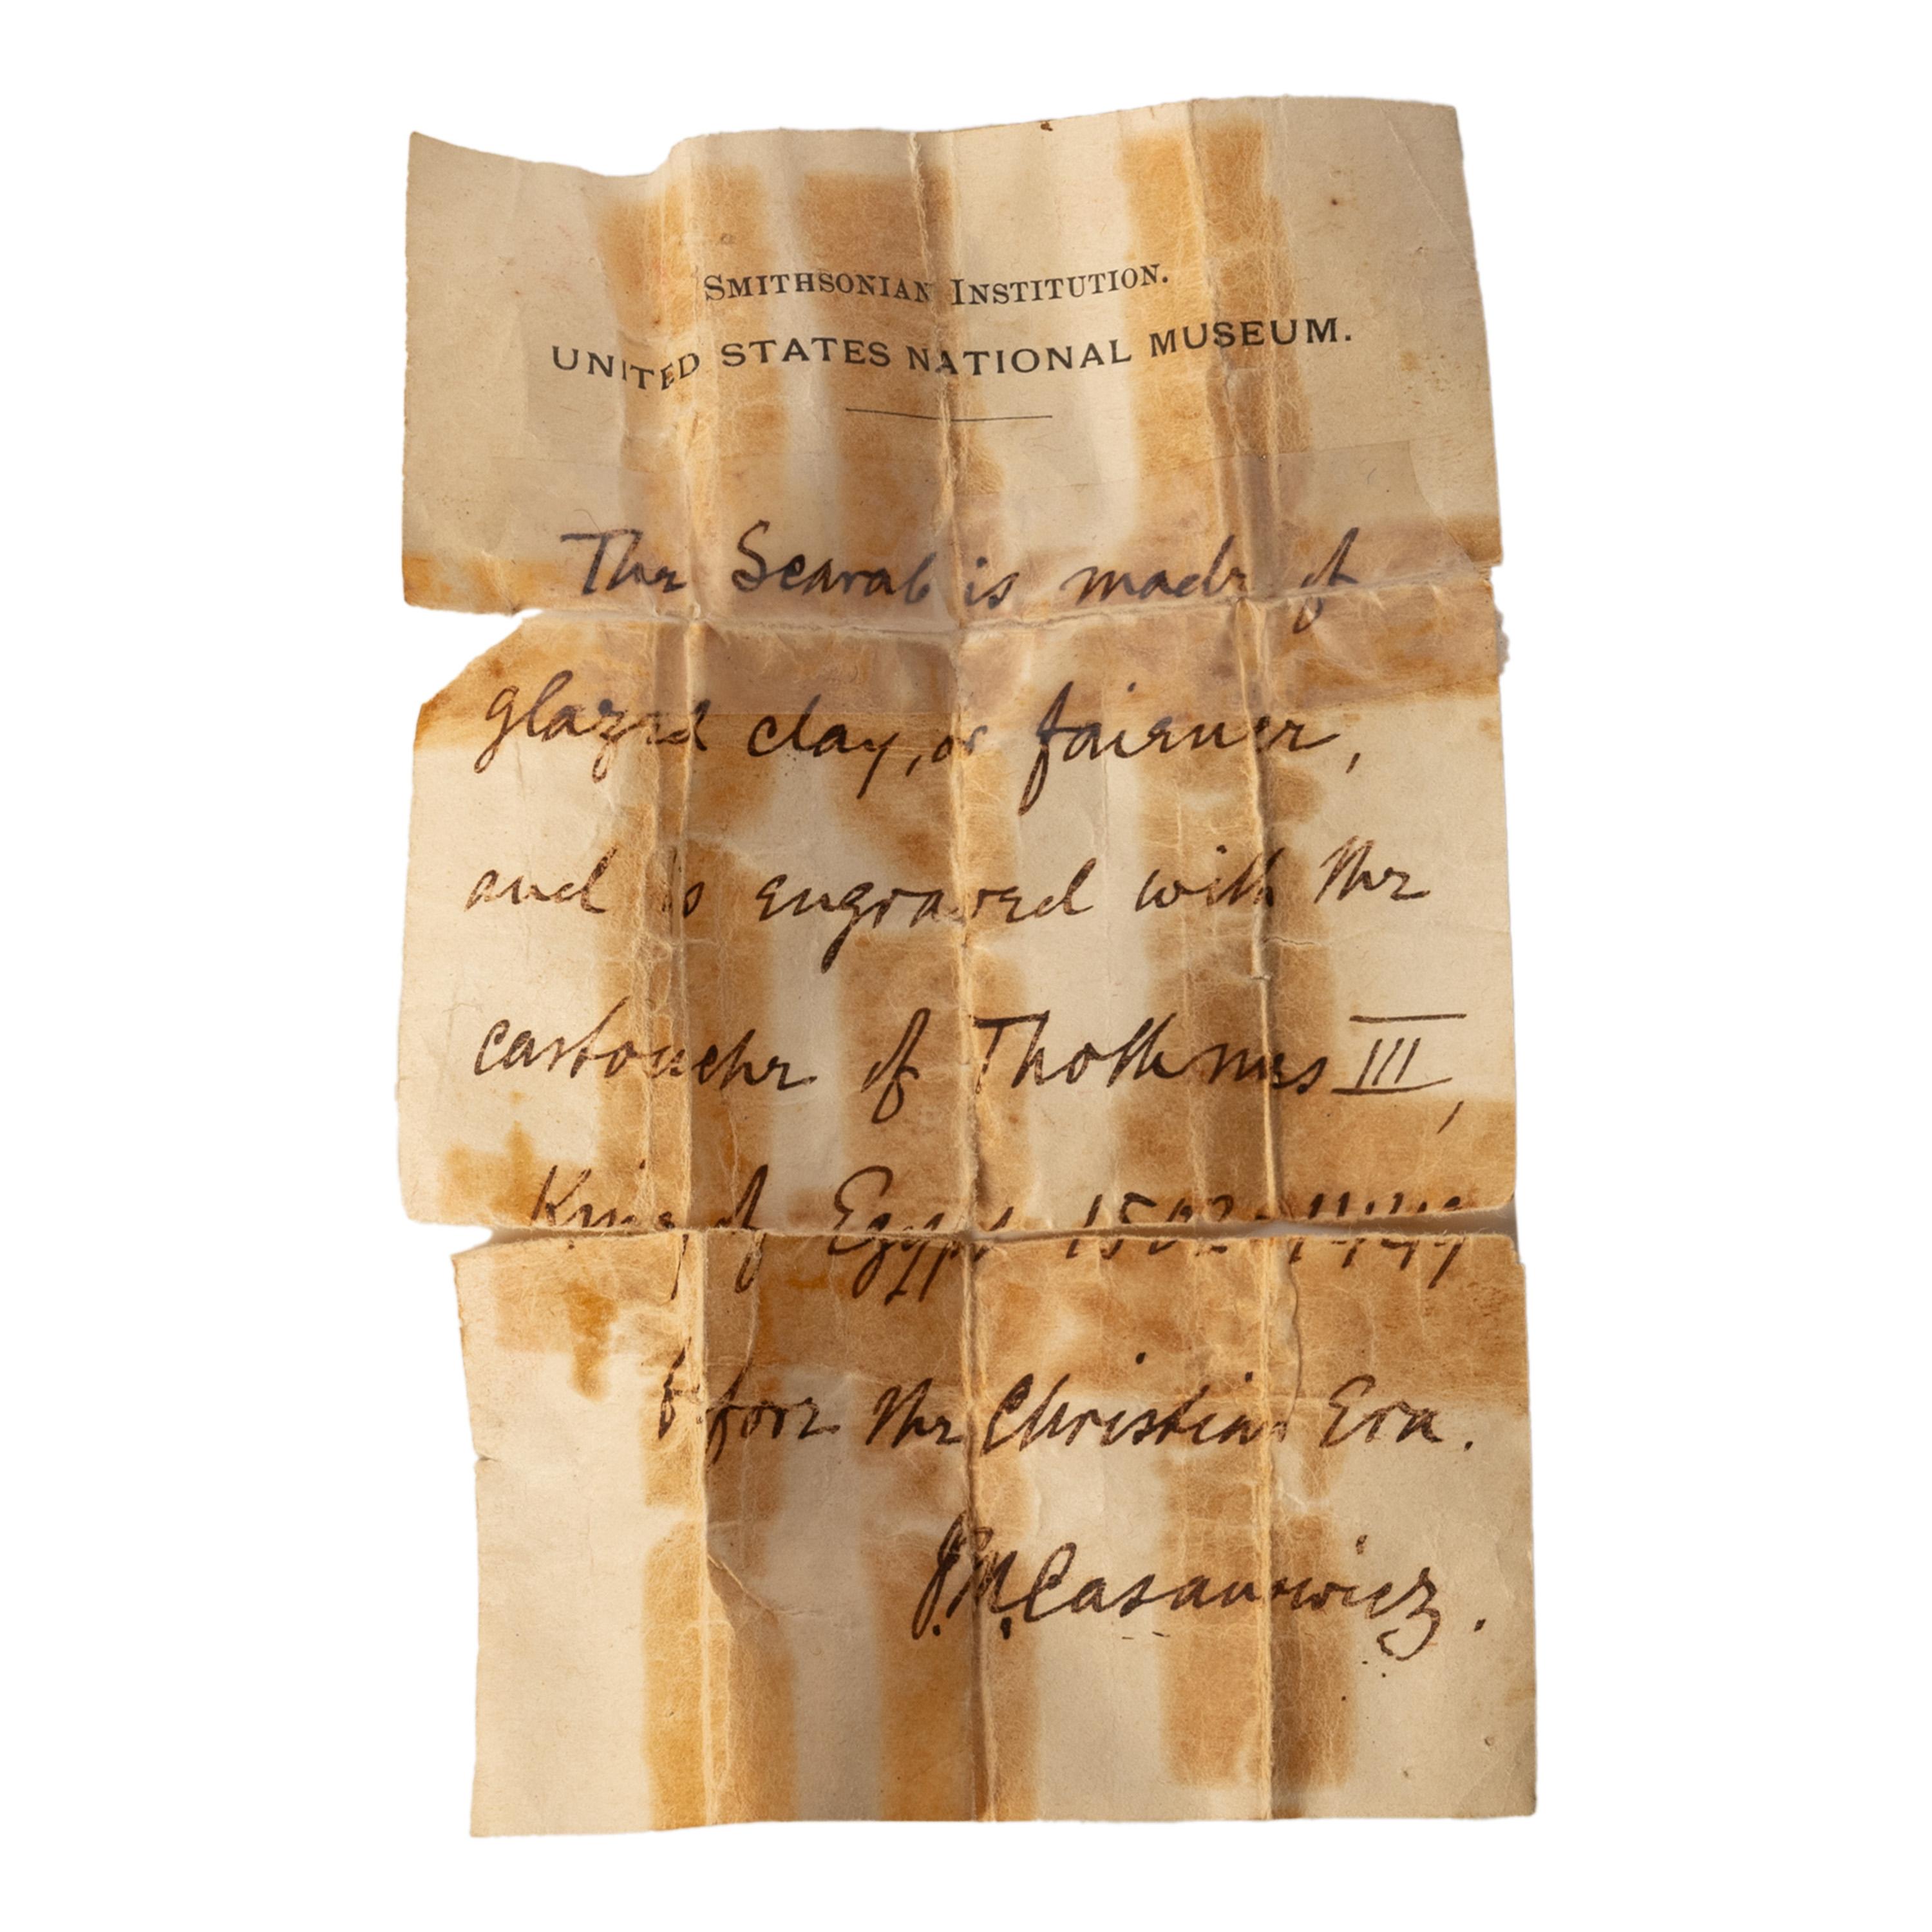 SMITHSONIAN INSTITUTION.
UNITED STATES NATIONAL MUSEUM.
The Scarab is made of
glazed clay, or faience,
and is engraved with the
cartouche of Thothmes III,
King of Egypt 1502-1449
before the Christian Era.
I. M. Casanowicz.